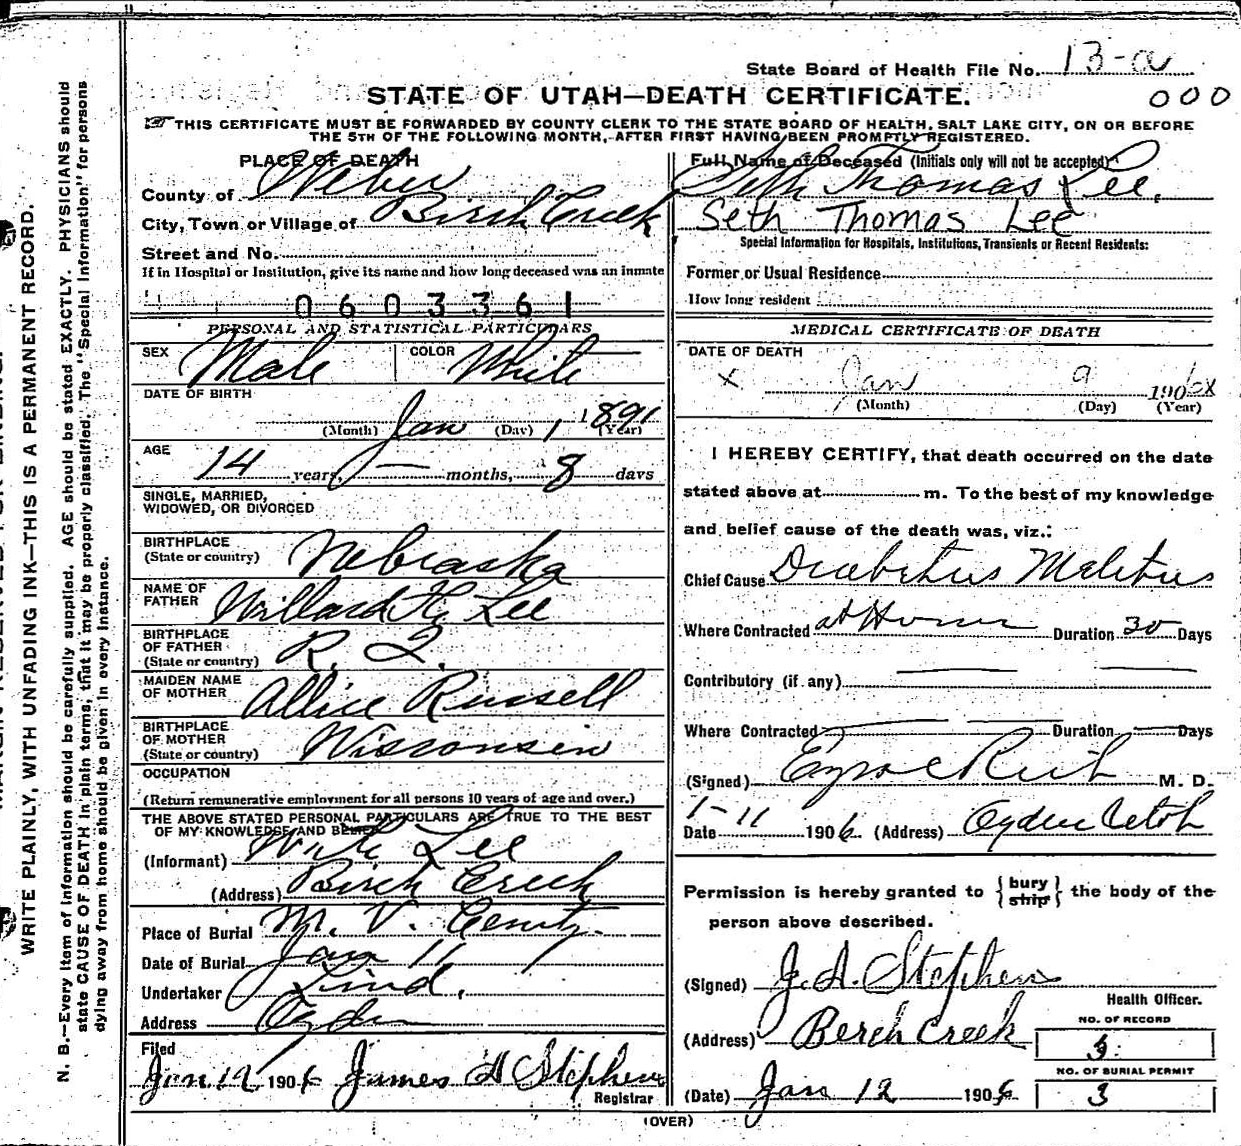 State Board of Health File No. 13-a
000
STATE OF UTAH—DEATH CERTIFICATE.
THIS CERTIFICATE MUST BE FORWARDED BY COUNTY CLERK TO THE STATE BOARD OF HEALTH, SALT LAKE CITY, ON OR BEFORE
THE 5TH OF THE FOLLOWING MONTH, AFTER FIRST HAVING BEEN PROMPTLY REGISTERED.
PLACE OF DEATH
County of Weber
City, Town or Village of Birch Creek
Street and No.
If in Hospital or Institution, give its name and how long deceased was an inmate
0603361
PERSONAL AND STATISTICAL PARTICULARS
SEX Male COLOR White
DATE OF BIRTH
(Month) Jan (Day) 1 1891 (Year)
AGE 14 years, — months, 8 days
SINGLE, MARRIED,
WIDOWED, OR DIVORCED
BIRTHPLACE
(State or country) Nebraska
NAME OF
FATHER Willard H. Lee
BIRTHPLACE
OF FATHER
(State or country) R. I.
MAIDEN NAME
OF MOTHER Allice Russell
BIRTHPLACE
OF MOTHER
(State or country) Wisconsen
OCCUPATION
(Return remunerative employment for all persons 10 years of age and over.)
THE ABOVE STATED PERSONAL PARTICULARS ARE TRUE TO THE BEST
OF MY KNOWLEDGE AND BELIEF
(Informant) Lee
(Address) Birch Creek
Place of Burial M. V. Cemty.
Date of Burial Jan 11
Undertaker Lind.
Address Ogden
Filed
Jan 12 1906 James H Stephens
Registrar
Full Name of Deceased (Initials only will not be accepted)
Seth Thomas Lee.
Seth Thomas Lee
Special Information for Hospitals, Institutions, Transients or Recent Residents:
Former or Usual Residence
How long resident
MEDICAL CERTIFICATE OF DEATH
DATE OF DEATH
x Jan 9 1906x
(Month) (Day) (Year)
I HEREBY CERTIFY, that death occurred on the date
stated above at m. To the best of my knowledge
and belief cause of the death was, viz.:
Chief Cause Diabetus Melitus
Where Contracted at Home Duration 30 Days
Contributory (if any)
Where Contracted Duration Days
(Signed) Rich M. D.
Date 1-11 1906 (Address) Ogden Utah
Permission is hereby granted to {bury ship} the body of the
person above described.
(Signed) J. H. Stephens
Health Officer.
(Address) Berch Creek
NO. OF RECORD
3
NO. OF BURIAL PERMIT
(Date) Jan 12 1906 3
(OVER)
WRITE PLAINLY, WITH UNFADING INK—THIS IS A PERMANENT RECORD.
N. B.—Every item of information should be carefully supplied. AGE should be stated EXACTLY. PHYSICIANS should
state CAUSE OF DEATH in plain terms, that it may be properly classified. The "Special Information" for persons
dying away from home should be given in every instance.